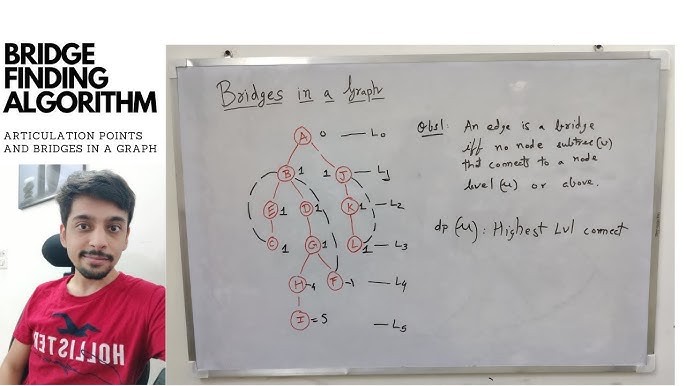 BRIDGE
FINDING
ALGORITHM
ARTICULATION POINTS
AND BRIDGES IN A GRAPH
HOLLISTER
Bridges in a Graph
A 0 — L0
B 1 1 J — L1
E 1 D 1 K 1 — L2
C 1 G 1 L 1 — L3
H -4 F -1 — L4
I = 5 — L5
Obs1: An edge is a bridge
iff no node subtree(v)
that connects to a node
level(u) or above.
dp(u): Highest Lvl connect